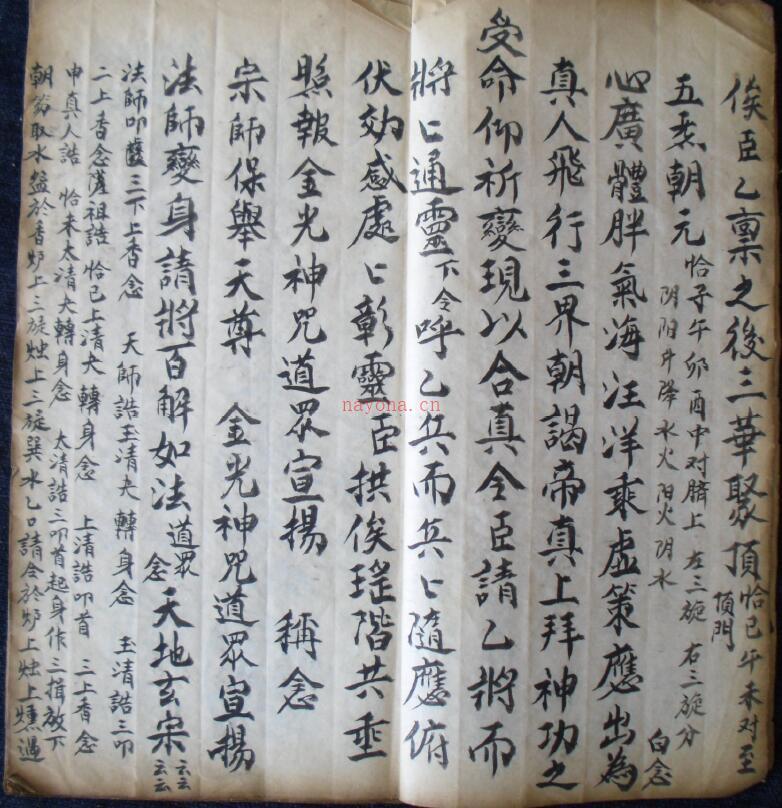 俟臣乙禀之後三華聚頂恰巳午未对至頂門
五炁朝元恰子午卯酉中对臍上左三旋右三旋分阴阳升降水火阳火阴水 白念
心廣體胖氣海汪洋乘虛策應出為
真人飛行三界朝謁帝真上拜神功之
受命仰祈變現以合真令臣請乙將而
將匕通靈下令呼乙兵而兵匕隨應俯
伏効感處匕彰靈臣拱俟瑤階共垂
照報金光神咒道眾宣揚 稱念
宗師保舉天尊 金光神咒道眾宣揚
法師變身請將百解如法道眾念天地玄宗云云云云
法師叩齒三下上香念 天師誥玉清大轉身念 玉清誥三叩
二上香念薩祖誥恰巳上清大轉身念 上清誥叩首 三上香念
申真人誥 恰未太清大轉身念 太清誥三叩首起身作三揖放下
朝笏取水盂於香炉上三旋烛上三旋巽水乙口請令於炉上烛上燻過
nayona.cn